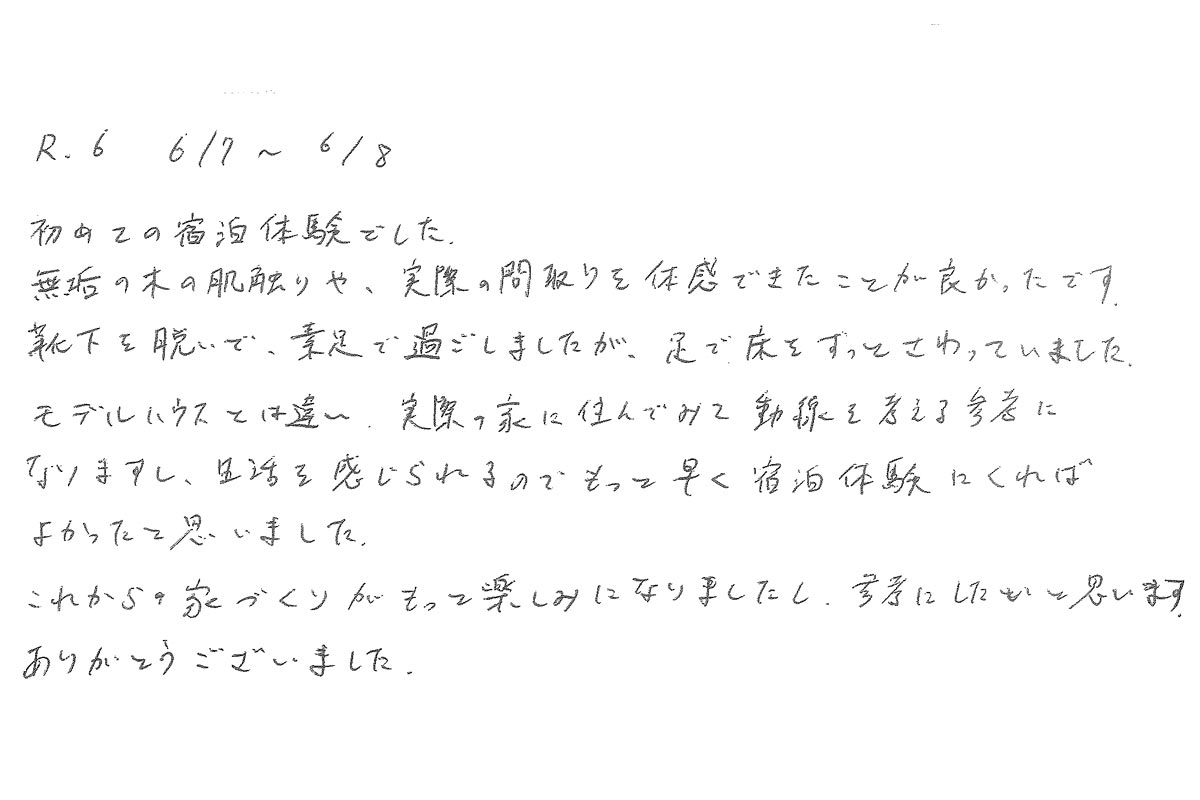 R.6 6/7～6/8
初めての宿泊体験でした.
無垢の木の肌触りや、実際の間取りを体感できたことが良かったです.
靴下を脱いで、素足で過ごしましたが、足で床をずっとさわっていました.
モデルハウスとは違い、実際の家に住んでみて動線を考える参考に
なりますし、生活を感じられるのでもっと早く宿泊体験にくれば
よかったと思いました.
これからの家づくりがもっと楽しみになりましたし、参考にしたいと思います.
ありがとうございました.